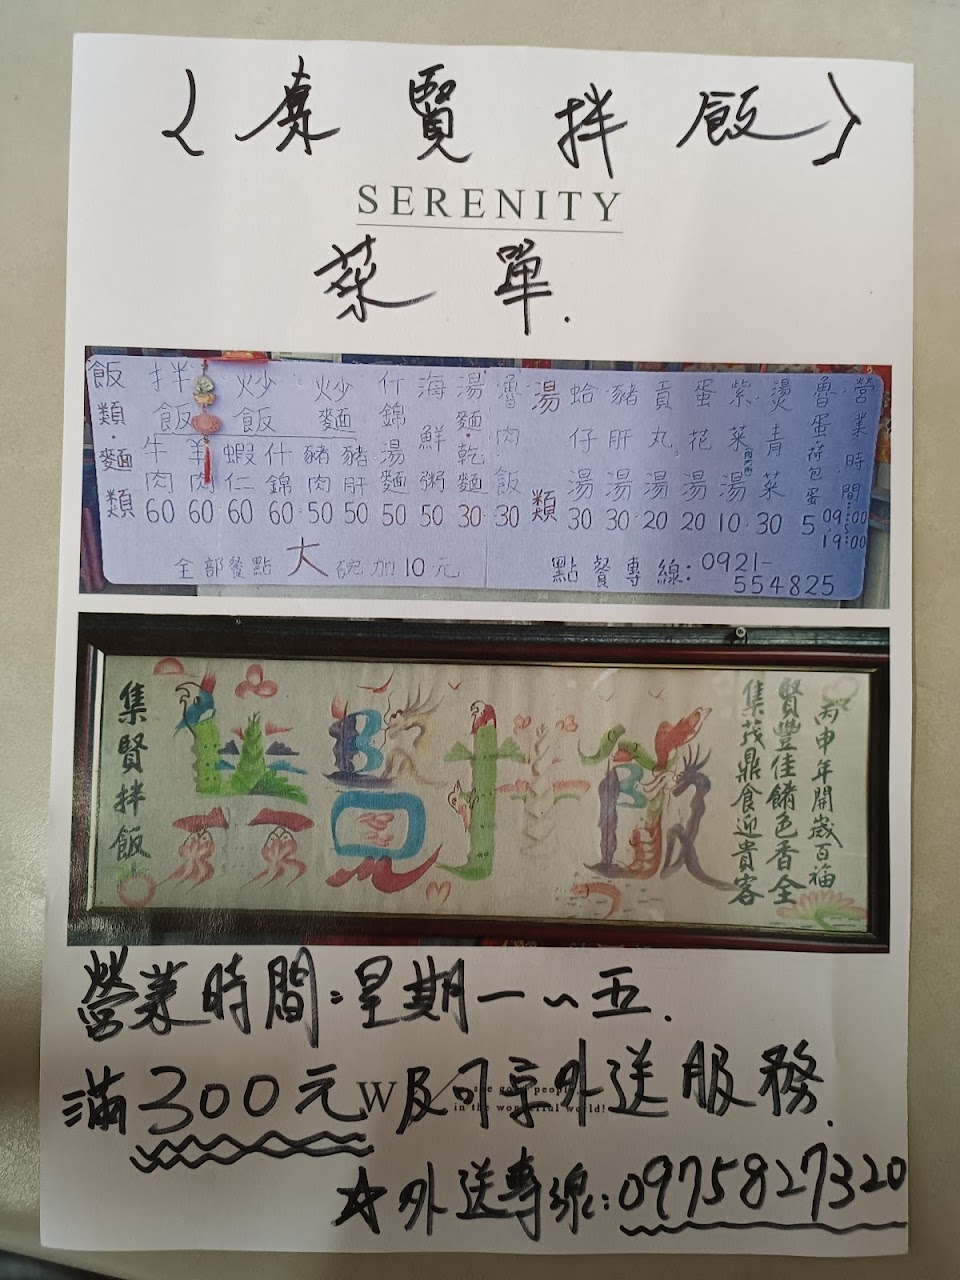 集賢拌飯
SERENITY
菜單.
飯類·麵類
拌飯
牛肉 60
羊肉 60
炒飯
蝦仁 60
什錦 60
炒麵
豬肉 50
豬肝 50
什錦湯麵 50
海鮮粥 50
湯麵·乾麵 30
魯肉飯 30
湯類
蛤仔湯 30
豬肝湯 30
貢丸湯 20
蛋花湯 20
紫菜湯 10
燙青菜 30
魯蛋·荷包蛋 5
營業時間:09:00~19:00
全部餐點大碗加10元
點餐專線:0921-
554825
集賢拌飯
集賢拌飯
丙申年開歲百福
賢豐佳餚色香全
集茂鼎食迎貴客
營業時間:星期一~五.
滿300元及可享外送服務.
in the wonderful world!
☆外送專線:0975827320